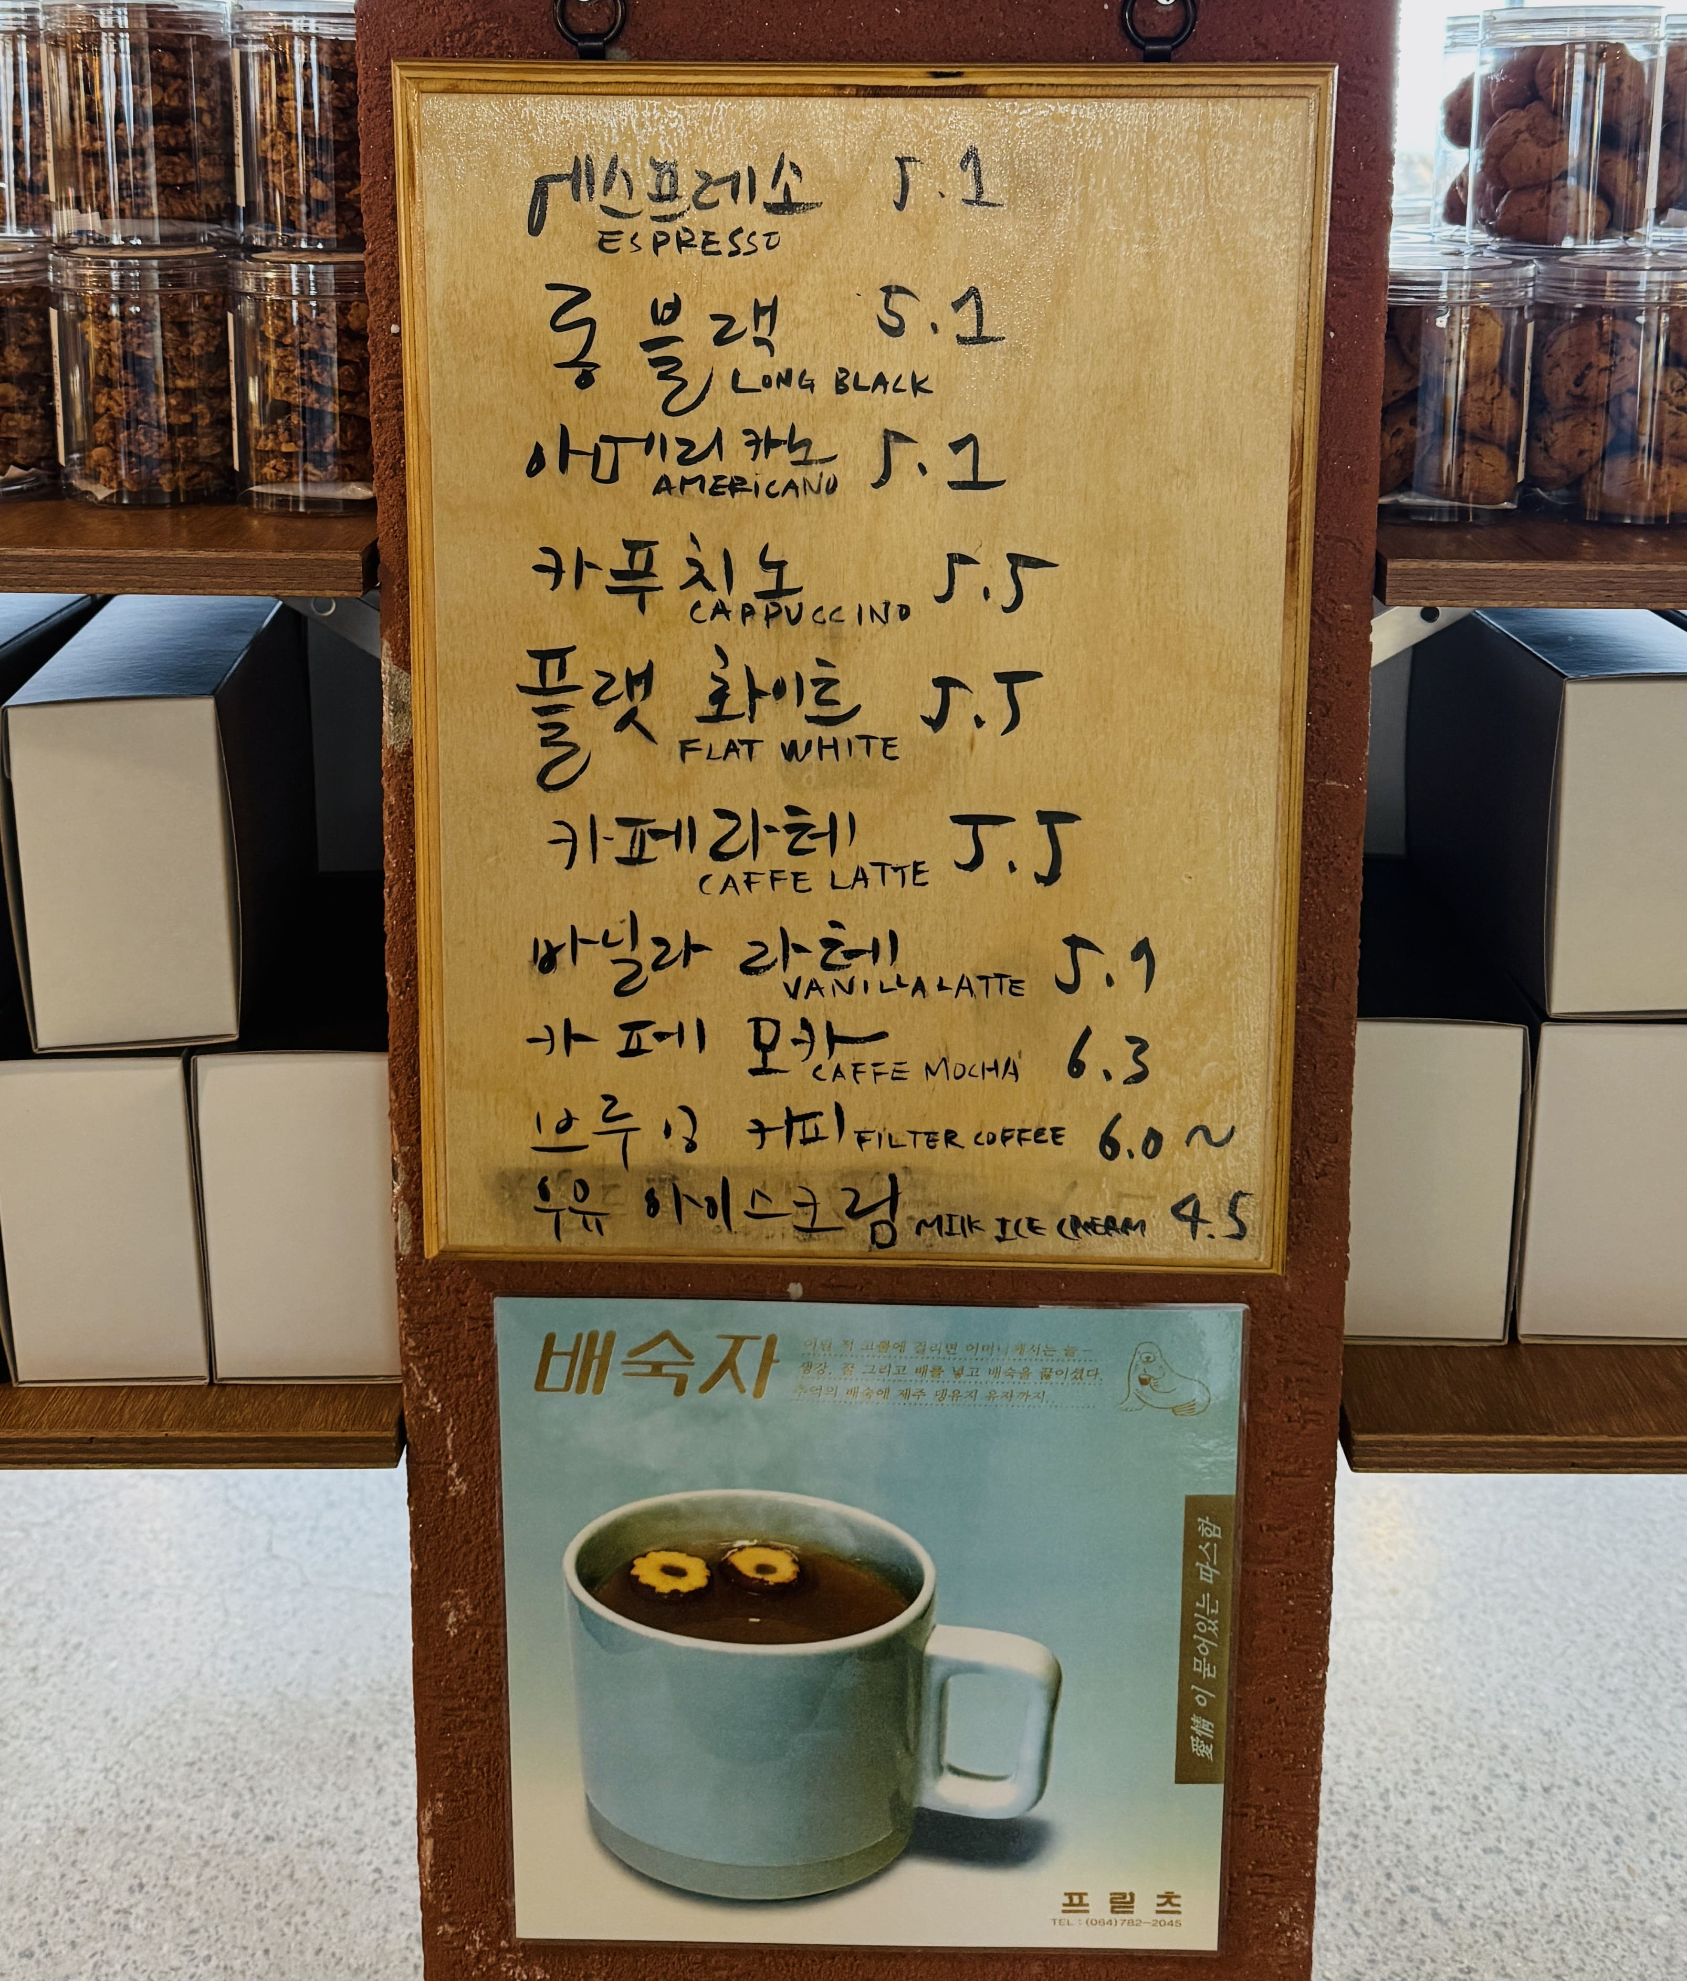 에스프레소 5.1
ESPRESSO
롱 블랙 5.1
LONG BLACK
아메리카노 5.1
AMERICANO
카푸치노 5.5
CAPPUCCINO
플랫 화이트 5.5
FLAT WHITE
카페라떼 5.5
CAFFE LATTE
바닐라 라떼
VANILLA LATTE
카페 모카 6.3
CAFFE MOCHA
브루잉 커피 FILTER COFFEE 6.0 ~
우유 아이스크림 MILK ICE CREAM 4.5
배숙자
어릴 적 고뿔에 걸리면 어머니께서는 늘
생강, 꿀 그리고 배를 넣고 배숙을 끓이셨다.
추억의 배숙에 제주 댕유지 유자까지..
愛情이 묻어있는 따스함
프릳츠
TEL : (064)782-2045